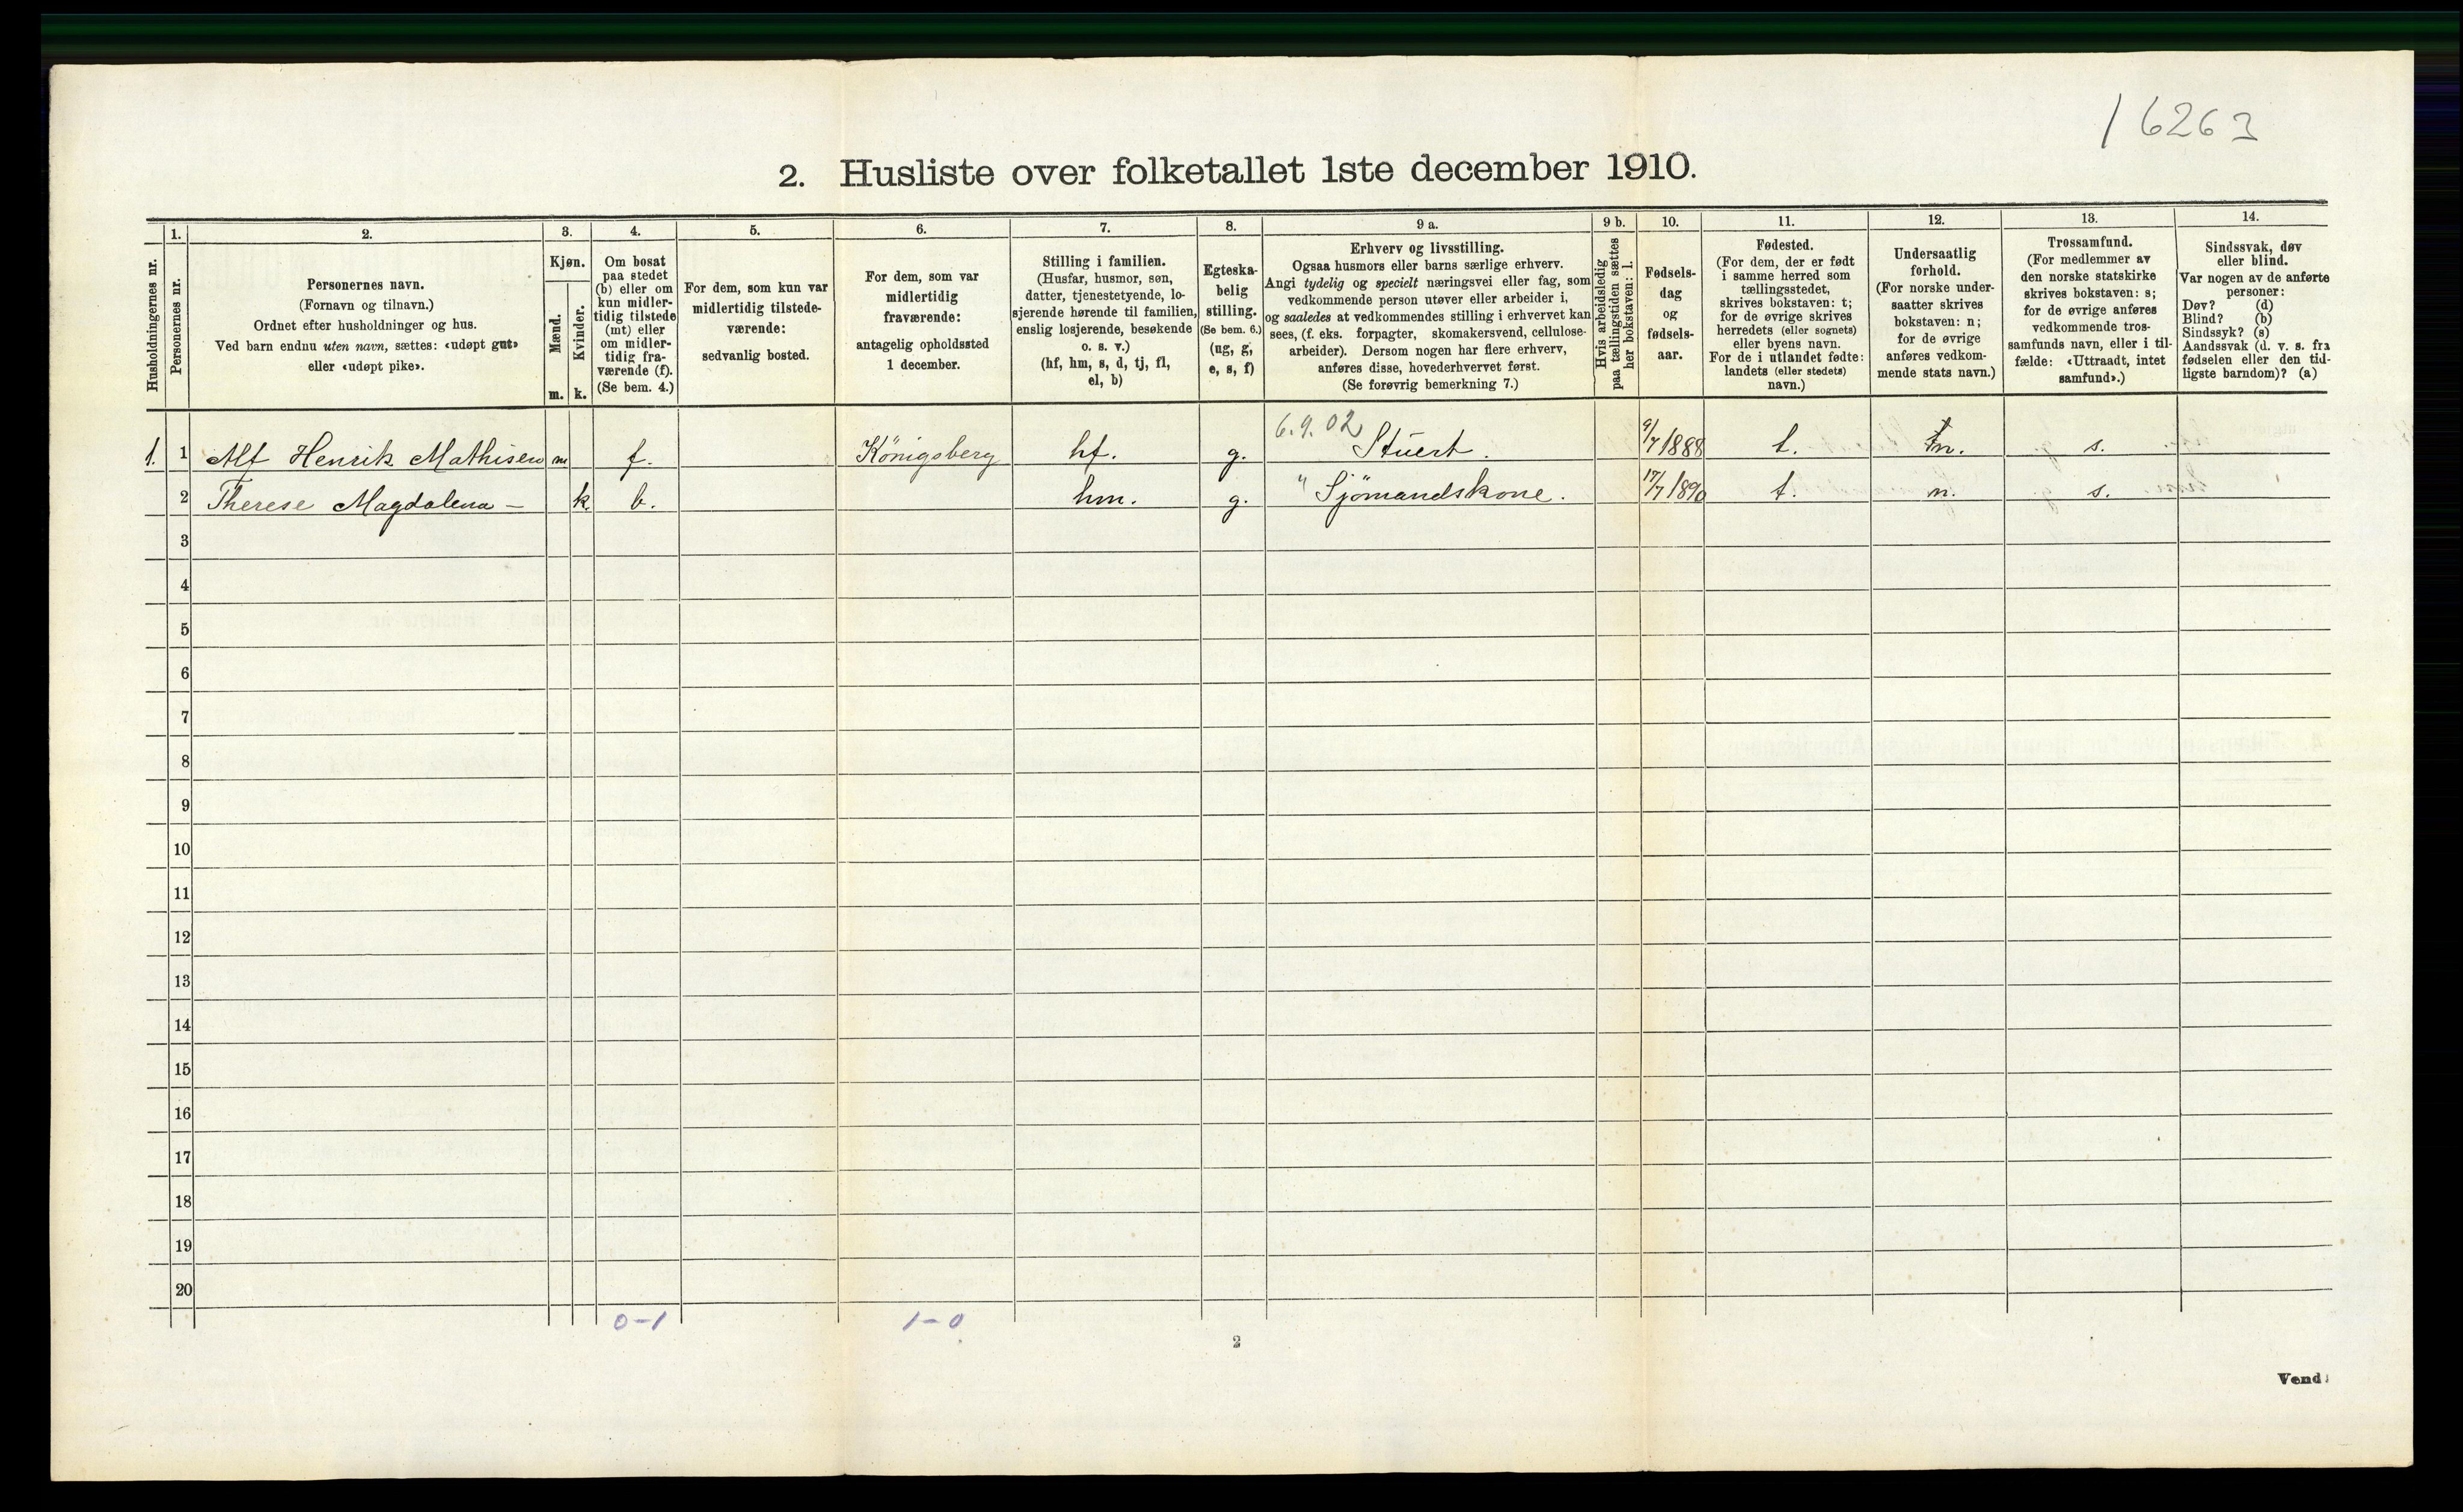 16263
2. Husliste over folketallet 1ste december 1910.
Husholdningernes nr.
1.
Personernes nr.
2.
Personernes navn.
(Fornavn og tilnavn.)
Ordnet efter husholdninger og hus.
Ved barn endnu uten navn, sættes: «udøpt gut»
eller «udøpt pike».
3.
Kjøn.
Mænd.
m.
Kvinder.
k.
4.
Om bosat
paa stedet
(b) eller om
kun midler-
tidig tilstede
(mt) eller
om midler-
tidig fra-
værende (f).
(Se bem. 4.)
5.
For dem, som kun var
midlertidig tilstede-
værende:
sedvanlig bosted.
6.
For dem, som var
midlertidig
fraværende:
antagelig opholdssted
1 december.
7.
Stilling i familien.
(Husfar, husmor, søn,
datter, tjenestetyende, lo-
sjerende hørende til familien,
enslig losjerende, besøkende
o. s. v.)
(hf, hm, s, d, tj, fl,
el, b)
8.
Egteska-
belig
stilling.
(Se bem. 6.)
(ug, g,
e, s, f)
9 a.
Erhverv og livsstilling.
Ogsaa husmors eller barns særlige erhverv.
Angi tydelig og specielt næringsvei eller fag, som
vedkommende person utøver eller arbeider i,
og saaledes at vedkommendes stilling i erhvervet kan
sees, (f. eks. forpagter, skomakersvend, cellulose-
arbeider). Dersom nogen har flere erhverv,
anføres disse, hovederhvervet først.
(Se forøvrig bemerkning 7.)
9 b.
Hvis arbeidsledig
paa tællingstiden sættes
her bokstaven: l.
10.
Fødsels-
dag
og
fødsels-
aar.
11.
Fødested.
(For dem, der er født
i samme herred som
tællingsstedet,
skrives bokstaven: t;
for de øvrige skrives
herredets (eller sognets)
eller byens navn.
For de i utlandet fødte:
landets (eller stedets)
navn.)
12.
Undersaatlig
forhold.
(For norske under-
saatter skrives
bokstaven: n;
for de øvrige
anføres vedkom-
mende stats navn.)
13.
Trossamfund.
(For medlemmer av
den norske statskirke
skrives bokstaven: s;
for de øvrige anføres
vedkommende tros-
samfunds navn, eller i til-
fælde: «Uttraadt, intet
samfund».)
14.
Sindssvak, døv
eller blind.
Var nogen av de anførte
personer:
Døv? (d)
Blind? (b)
Sindssyk? (s)
Aandssvak (d. v. s. fra
fødselen eller den tid-
ligste barndom)? (a)
6.9.02
1. 1 Alf Henrik Mathisen m f. Königsberg hf. g. Stuert. 9/7 1888 t. n. s.
2 Therese Magdalena – k. b. hm. g. " Sjömandskone. 17/7 1890 t. n. s.
3
4
5
6
7
8
9
10
11
12
13
14
15
16
17
18
19
20
0–1 1–0
2
Vend!